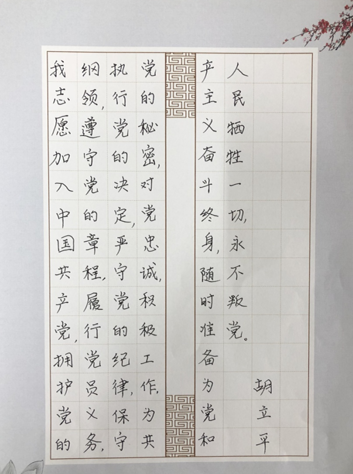 我志愿加入中国共产党，拥护党的
纲领，遵守党的章程，履行党员义务，
执行党的决定，严守党的纪律，保守
党的秘密，对党忠诚，积极工作，为共
产主义奋斗终身，随时准备为党和
人民牺牲一切，永不叛党。
胡立平